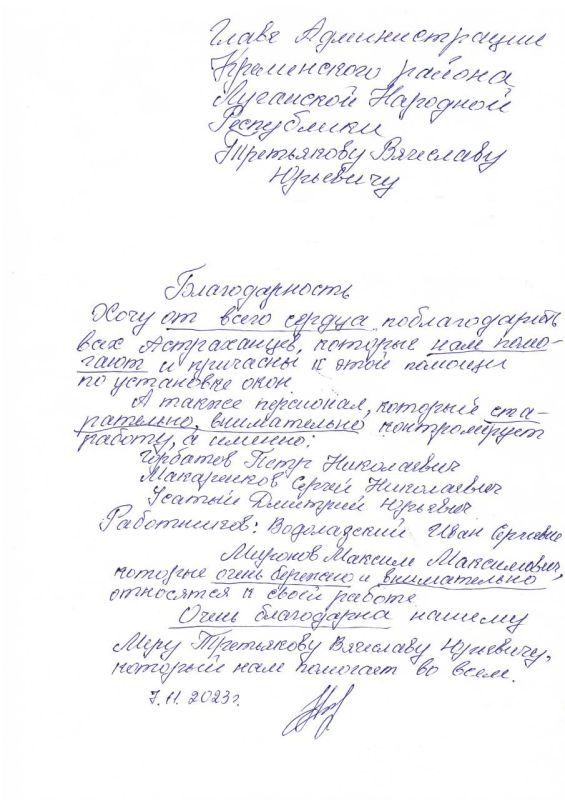 Главе Администрации
Кременского района
Луганской Народной
Республики
Третьякову Вячеславу
Юрьевичу
Благодарность
Хочу от всего сердца поблагодарить
всех Астраханцев, которые нам помо-
гают и причасны к этой помощи
по установке окон
А также персионал, который ста-
рательно, внимательно контролирует
работу, а именно:
Горбатов Петр Николаевич
Макаренков Сергей Николаевич
Усатый Дмитрий Юрьевич
Работников: Водолазский Иван Сергеевич
Миронов Максим Максимович,
которые очень бережно и внимательно
относятся к своей работе
Очень благодарна нашему
Меру Третьякову Вячеславу Юрьевичу,
который нам помогает во всем.
7.11.2023г.